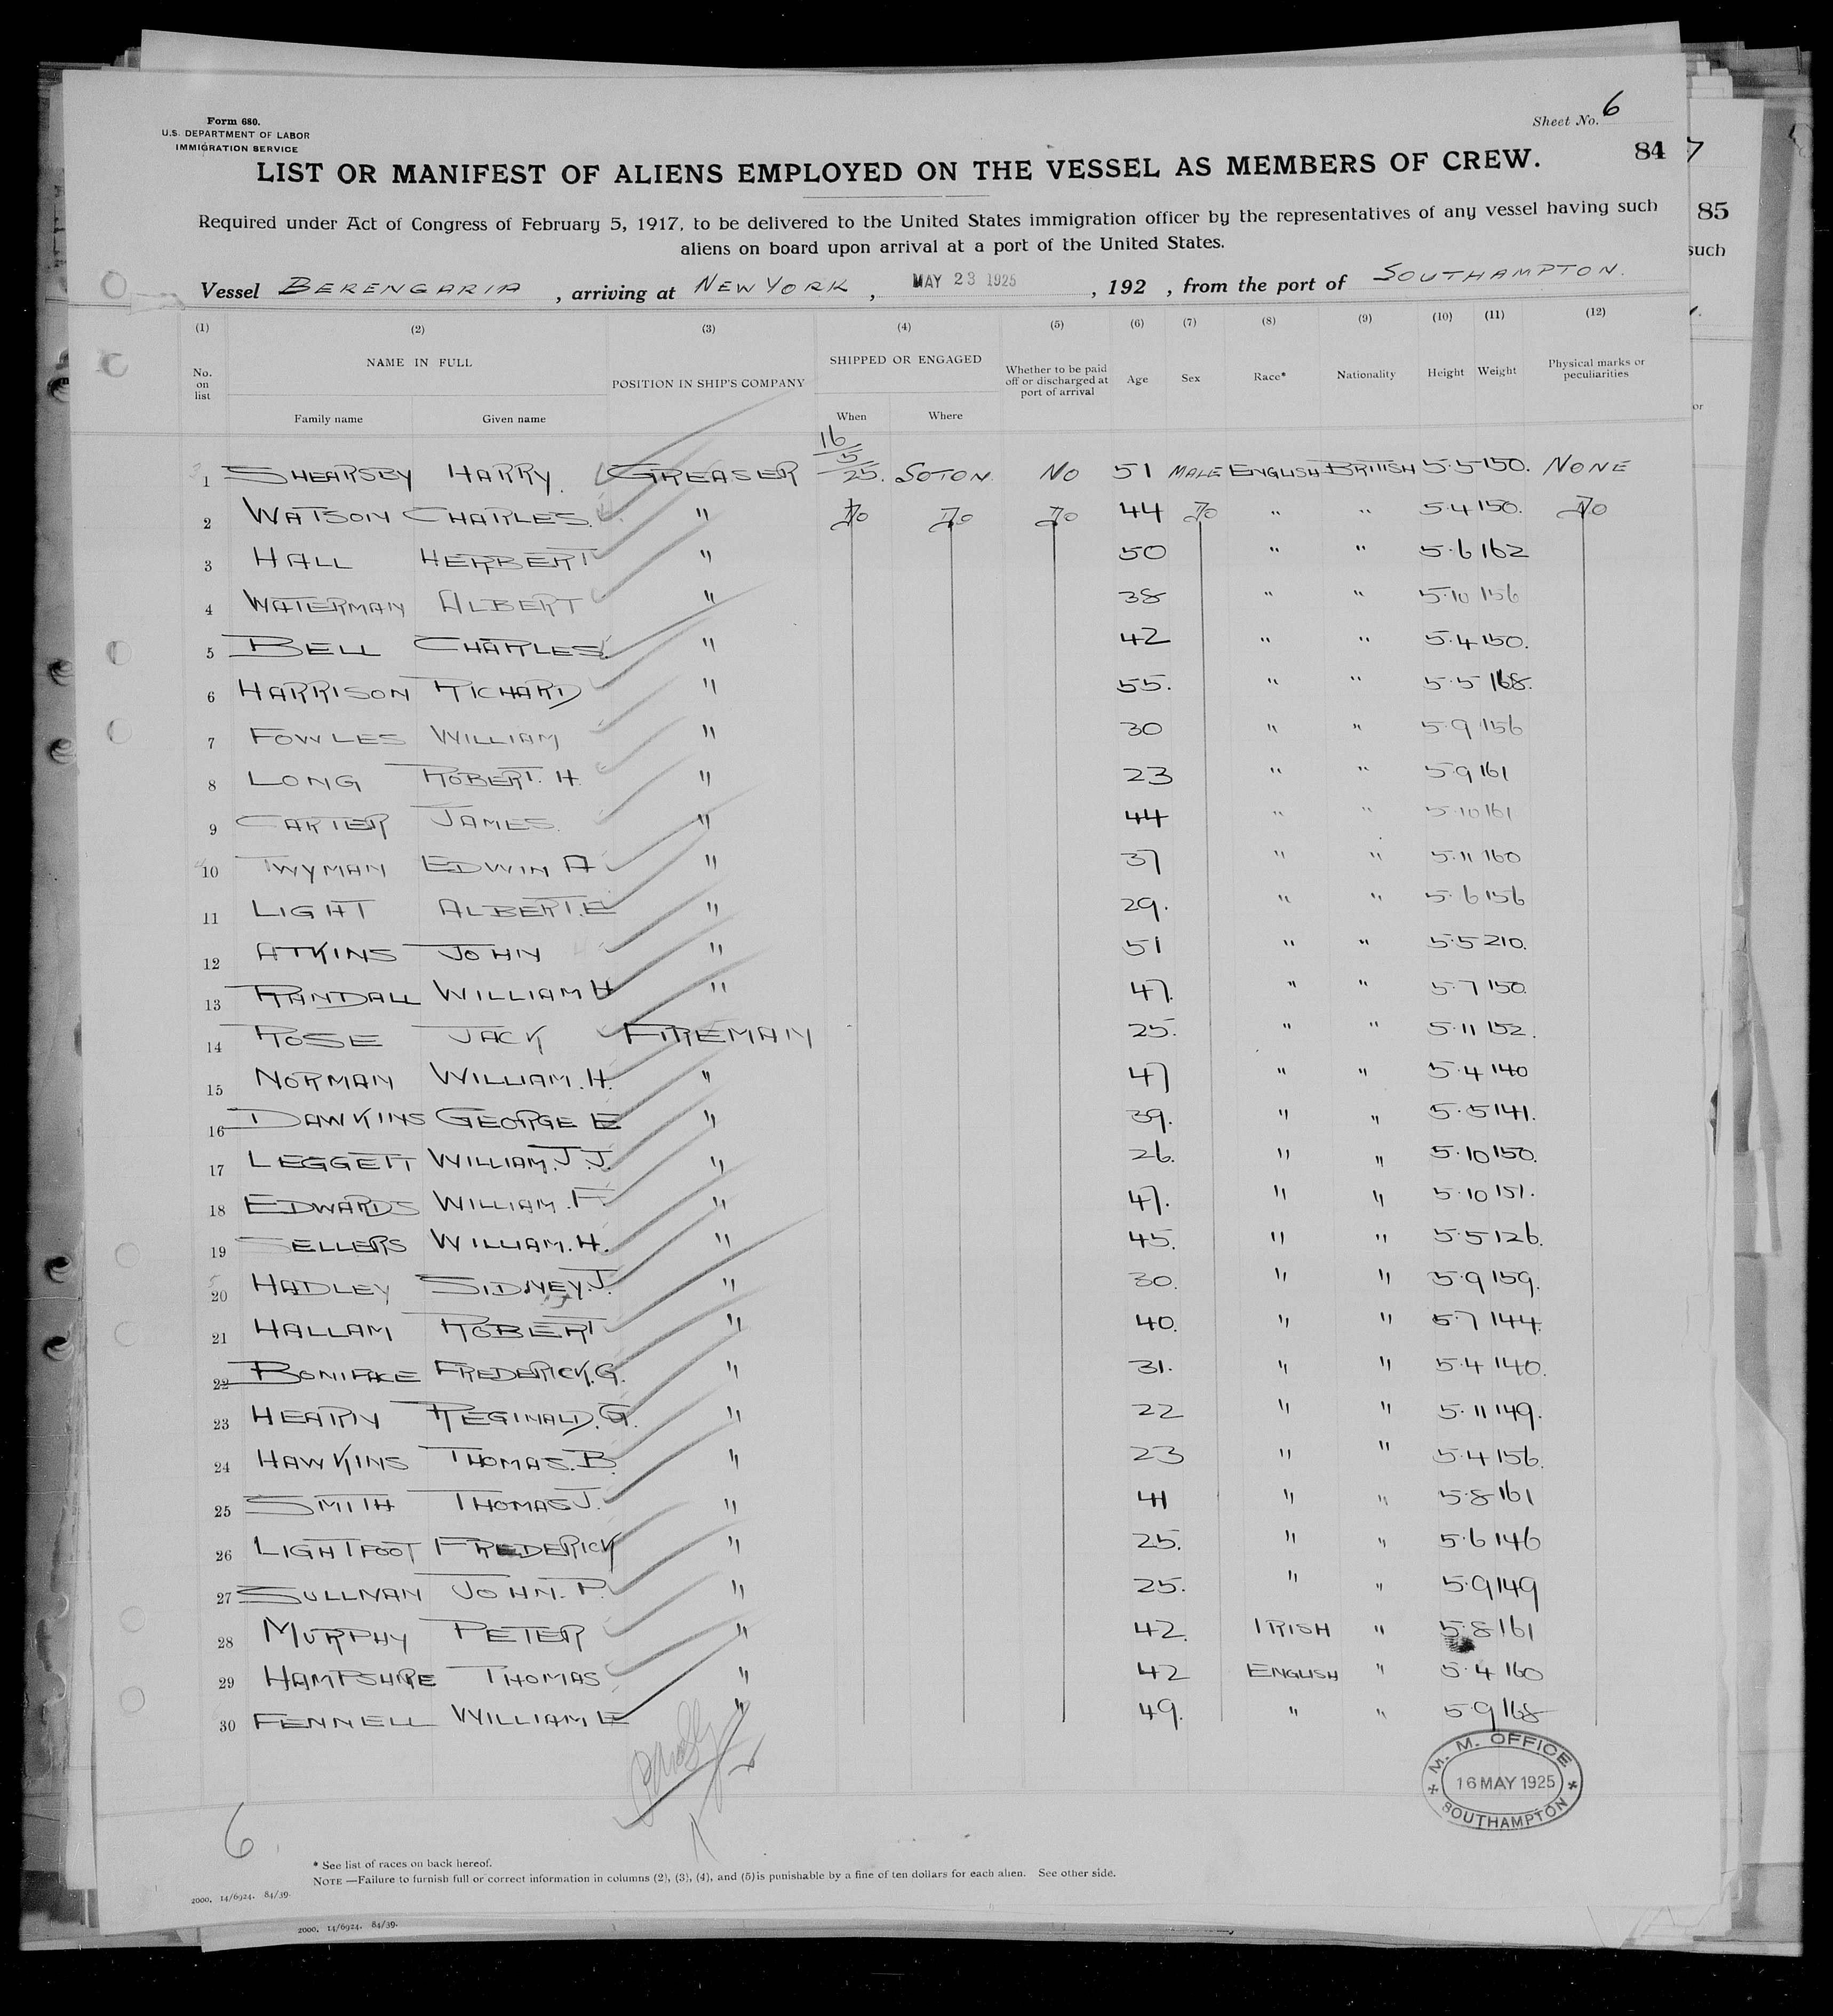 Form 680.
U.S. DEPARTMENT OF LABOR
IMMIGRATION SERVICE
Sheet No. 6
84 7
LIST OR MANIFEST OF ALIENS EMPLOYED ON THE VESSEL AS MEMBERS OF CREW.
85
Required under Act of Congress of February 5, 1917, to be delivered to the United States immigration officer by the representatives of any vessel having such
aliens on board upon arrival at a port of the United States.
such
Vessel BERENGARIA, arriving at NEW YORK, MAY 23 1925, 192 , from the port of SOUTHAMPTON.
(1) (2) (3) (4) (5) (6) (7) (8) (9) (10) (11) (12)
No. on list NAME IN FULL POSITION IN SHIP'S COMPANY SHIPPED OR ENGAGED Whether to be paid off or discharged at port of arrival Age Sex Race* Nationality Height Weight Physical marks or peculiarities
or
Family name Given name When Where
1 SHEARSBY HARRY. GREASER 16/5/25. SOTON. NO 51 MALE ENGLISH BRITISH 5.5 150. NONE
2 WATSON CHARLES. " Do Do Do 44 Do " " 5.4 150. Do
3 HALL HERBERT " 50 " " 5.6 162
4 WATERMAN ALBERT " 38 " " 5.10 156
5 BELL CHARLES. " 42 " " 5.4 150.
6 HARRISON RICHARD " 55. " " 5.5 168.
7 FOWLES WILLIAM " 30 " " 5.9 156
8 LONG ROBERT. H. " 23 " " 5.9 161
9 CARTER JAMES. " 44 " " 5.10 161
10 TWYMAN EDWIN A " 37 " " 5.11 160
11 LIGHT ALBERT.E " 29. " " 5.6 156
12 ATKINS JOHN " 51 " " 5.5 210.
13 RANDALL WILLIAM H " 47. " " 5.7 150.
14 ROSE JACK FIREMAN 25. " " 5.11 152.
15 NORMAN WILLIAM.H. " 47 " " 5.4 140
16 DAWKINS GEORGE E " 39. " " 5.5 141.
17 LEGGETT WILLIAM.J.J. " 26. " " 5.10 150.
18 EDWARDS WILLIAM.F. " 47. " " 5.10 151.
19 SELLERS WILLIAM.H. " 45. " " 5.5 126.
20 HADLEY SIDNEY.J. " 30. " " 5.9 159.
21 HALLAM ROBERT " 40. " " 5.7 144.
22 BONIFACE FREDERICK.G. " 31. " " 5.4 140.
23 HEARN REGINALD.G. " 22 " " 5.11 149.
24 HAWKINS THOMAS.B. " 23 " " 5.4 156.
25 SMITH THOMAS J. " 41 " " 5.8 161
26 LIGHTFOOT FREDERICK " 25. " " 5.6 146
27 SULLIVAN JOHN.P. " 25. " " 5.9 149
28 MURPHY PETER " 42. IRISH " 5.8 161
29 HAMPSHIRE THOMAS " 42 ENGLISH " 5.4 160
30 FENNELL WILLIAM E " 49. " " 5.9 168
M. M. OFFICE
16 MAY 1925
SOUTHAMPTON
6
* See list of races on back hereof.
NOTE —Failure to furnish full or correct information in columns (2), (3), (4), and (5) is punishable by a fine of ten dollars for each alien. See other side.
2000. 14/6924. 84/39.
2000. 14/6924. 84/39.